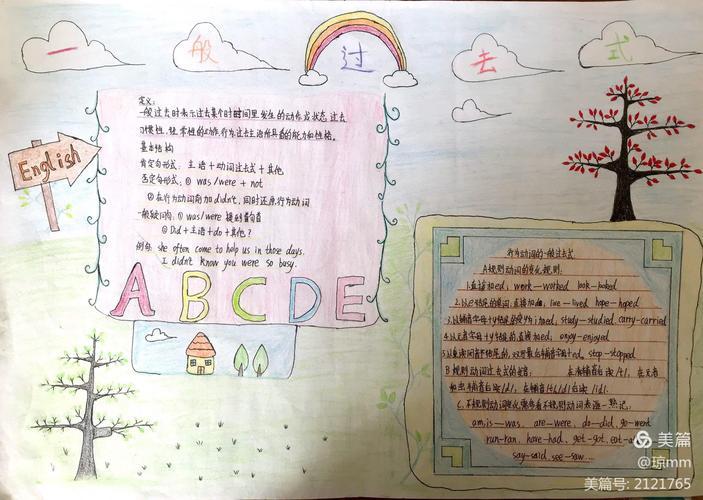 一般过去式
English
定义:
一般过去时表示过去某个时时间里发生的动作或状态,过去
习惯性、经常性的动作、行为;过去主语所具备的能力和性格。
基本结构
肯定句形式: 主语+动词过去式+其他
否定句形式: ① was/were + not
②在行为动词前加didn't,同时还原行为动词
一般疑问句: ① was/were 提到句首
② Did+主语+do+其他?
例句: she often come to help us in those days.
I didn't know you were so busy.
ABCDE
行为动词的一般过去式
A规则动词的变化规则:
1.直接加ed, work—worked look—looked
2.以e结尾的 直接加d, live—lived hope—hoped
3.以辅音字母+y结尾的变y为i加ed, study—studied carry-carried
4.以元音字母+y结尾的,直接加ed, enjoy-enjoyed
5.以重读闭音节结尾的,双写最后辅音字母+ed, stop-stopped
B 规则动词过去式的读音: 在清辅音后读/t/, 在元音
和浊辅音后读/d/, 在辅音/t/d/后读/id/.
C. 不规则动词 不规则动词表 熟记:
am,is—was, are—were, do—did, go—went
run-ran, have-had, get-got, eat-
say-said, see-saw...
美篇
@琼mm
美篇号: 2121765